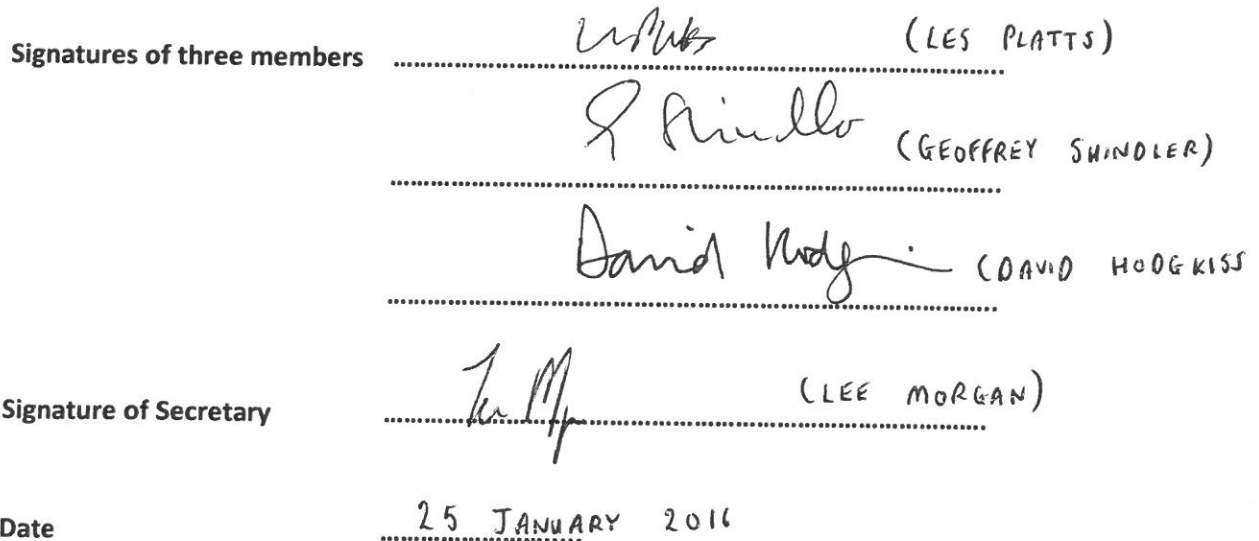 Signatures of three members (LES PLATTS)
(GEOFFREY SHINDLER)
David Hodg (DAVID HODGKISS
Signature of Secretary (LEE MORGAN)
Date 25 JANUARY 2016